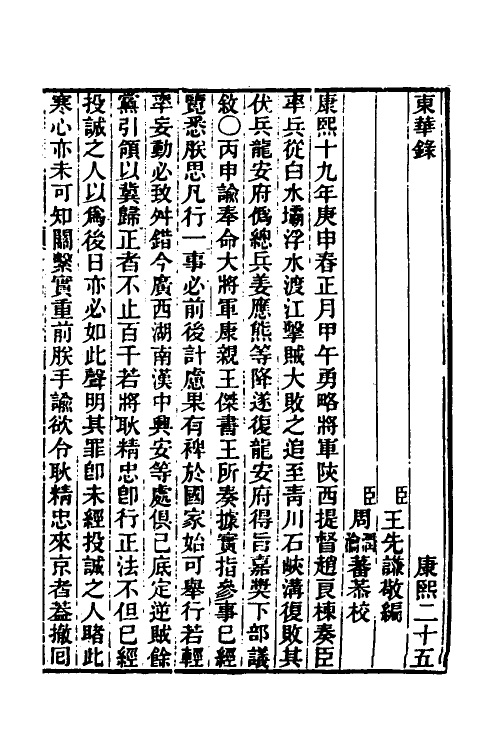 東華錄 康熙二十五
臣王先謙敬編
臣周潤蕃瀹蕃恭校
康熙十九年庚申春正月甲午勇略將軍陝西提督趙良棟奏臣
率兵從白水壩浮水渡江擊賊大敗之追至靑川石峽溝復敗其
伏兵龍安府僞總兵姜應熊等降遂復龍安府得旨嘉奬下部議
敘○丙申諭奉命大將軍康親王傑書王所奏據實指參事已經
覽悉朕思凡行一事必前後計慮果有裨於國家始可舉行若輕
率妄動必致舛錯今廣西湖南漢中興安等處俱已底定逆賊餘
黨引領以冀歸正者不止百千若將耿精忠卽行正法不但已經
投誠之人以爲後日亦必如此聲明其罪卽未經投誠之人睹此
寒心亦未可知關繫實重前朕手諭欲令耿精忠來京者蓋撤回